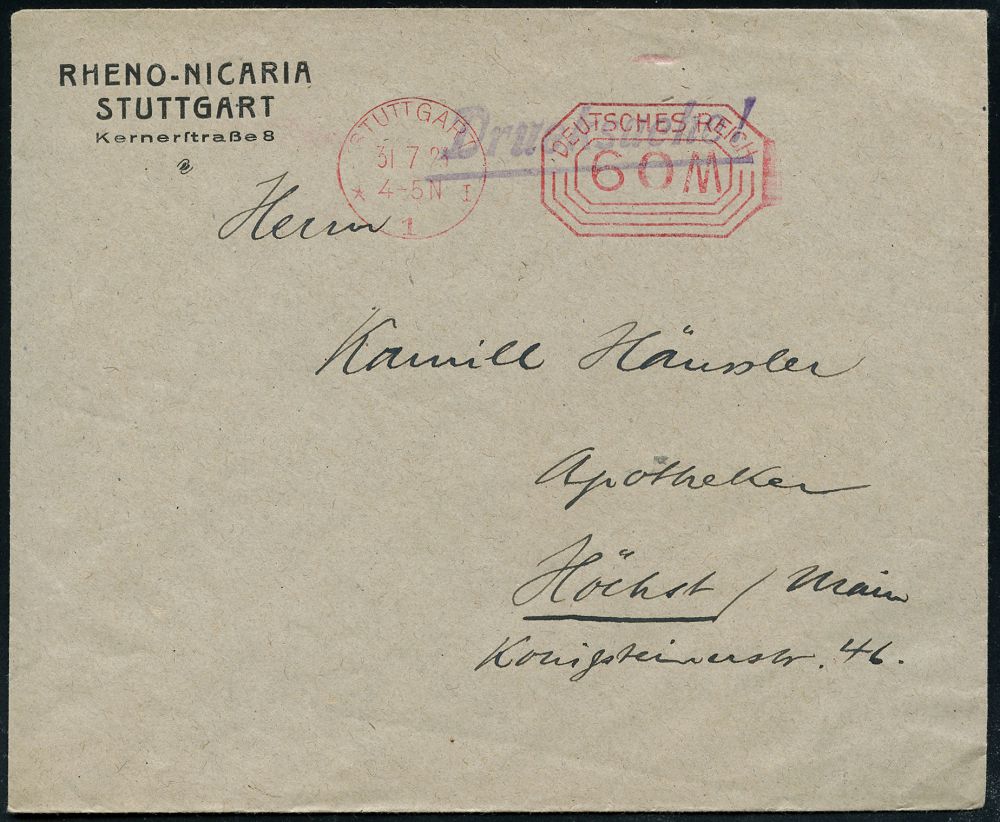 RHENO-NICARIA
STUTTGART
Kernerſtraße 8
STUTTGART
31 7 2
4-5 N I
1
Drucksache!
DEUTSCHES REICH
60 M
Herrn
Kamill Häussler
Apotheker
Höchst / Main
Königsteinerstr. 46.